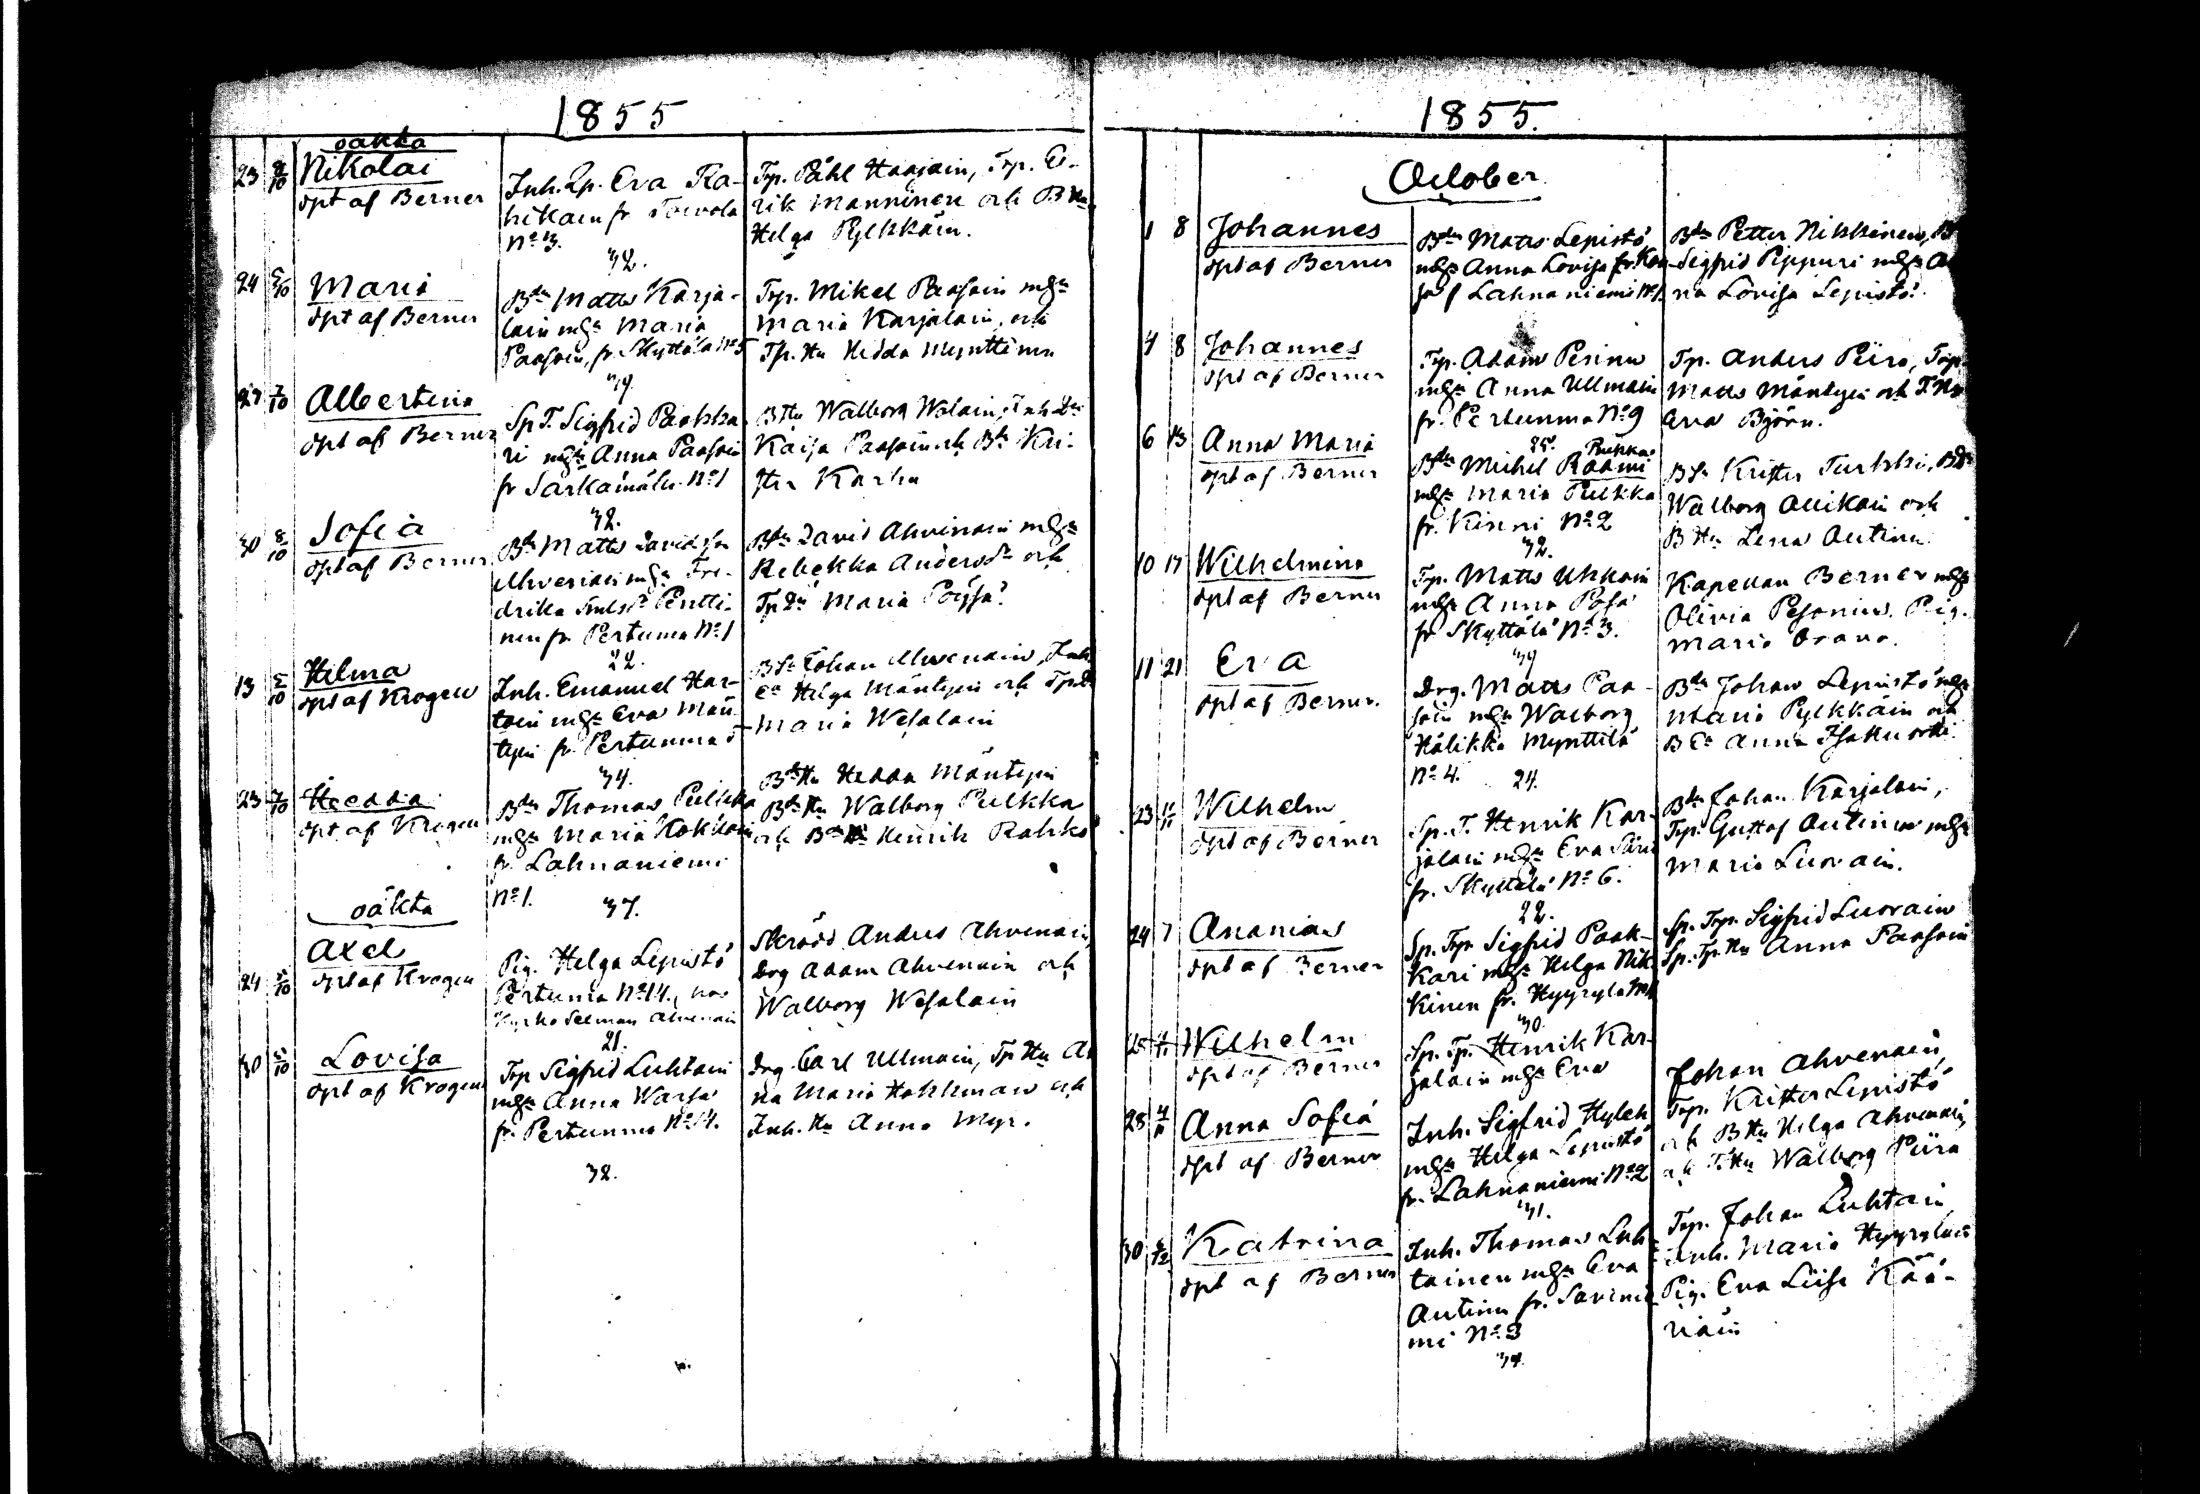 1855
oäkta
23 9/10 Nikolai
döpt af Berner
Inh. Dr. Eva Ka-
hikain fr Toivola
No 3.
32.
Trp. Påhl Haajain, Trp. Ee-
rik Manninen och B Hu
Helga Pylkkäin.
24 5/10 Maria
döpt af Berner
Bdn Matts Karja-
lain mhu Maria
Paasoin, fr Skyttälä No 5
39.
Trp. Mikel Paasoin mhu
Maria Karjalain, och
Tp. Hu Hedda Mynttinen
27 7/10 Albertina
döpt af Berner
Sp T. Sigfrid Paakka
ri mhu Anna Paasoin
fr Sarkamäki No 1
32.
B Hu Walborg
Kaisa Paasoin och Bdn Kri-
ster Karhu
30 8/10 Sofia
döpt af Berner
Bdn Matts Davidsson
Ahvenain mhu Fre-
drika Pentti-
nen fr Pertuma No 1
22.
Bdn David Ahvenain mhu
Rebekka Andersdr och
Tp Dr Maria Pöysä
13 5/10 Hilma
döpt af Krogen
Inh. Emanuel Har-
tain mhu Eva Män
tyin fr. Pertunma 5
34.
BSn Johan Ahvenain, Inh
Ea Helga Mäntyin och Tp D
Maria Wesalain
23 7/10 Hedda
döpt af Krogen
Bdn Thomas Pulkka
mhu Maria Kokkoin
fr. Lahnaniemi
No 1.
37.
Bd Hu Hedda Mäntyin
Bd Hu Walborg Pulkka
och Bdn Henrik Rahko
oäkta
24 5/10 Axel
döpt af Krogen
Pig. Helga Lepistö
Pertuma No 14., hos
Kyrko Ahvenain
21.
Skrädd. Anders Ahvenain,
Drg Adam Ahvenain och
Walborg Wesalain
30 5/10 Lovisa
döpt af Krogen
Trp Sigfrid Luhtain
mhu Anna Warsa
fr. Pertunma No 14.
32.
Drg. Carl Ullmain, Tp Hu An
na Maria Hokkman och
Inh. Hu Anna Myr.
1855.
October
1 8 Johannes
döpt af Berner
Bdn Matts Lepistö
mhu Anna Lovisa fr. Kou
ja / Lahnaniemi No 1.
Bdn Petter Nikkinen, B
Sigfrid Pippuri mhu An
na Lovisa Lepistö.
4 8 Johannes
döpt af Berner
Trp. Adam Perinen
mhu Anna Ullmain
fr. Pertunma No 9
25.
Tp. Anders Piira, Trp
Matts Mäntyin och T. Hu
Eva Björn.
6 13 Anna Maria
döpt af Berner
Pulkka
Bdn Michel Raami
mhu Maria Pulkka
fr. Kinni No 2
32.
BSn Krister Turkki, BD
Walborg Allikain och
B Hu Lena Autinen
10 17 Wilhelmina
döpt af Berner
Trp. Matts Ukkoin
mhu Anna Posa
fr Skyttälä No 3.
39
Kapellan Berner mhu
Olivia Pesonius. Pig.
Maria Orava.
11 21 Eva
döpt af Berner.
Drg. Matts Paa-
soin mhu Walborg
Hälikkä Mynttilä
No 4. 24.
Bdn Johan Lepistö mhu
Maria Pylkkäin och
B Ea Anna
23 Wilhelm
döpt af Berner
Sp. T. Henrik Kar-
jalain mhu Eva
fr. Skyttälä No 6.
22.
Bdn Johan Karjalain,
Trp. Gustaf Autinen mhu
Maria Luovain.
24 7 Ananias
döpt af Berner
Sp. Trp Sigfrid Paak-
kari mhu Helga Nik-
kinen fr. Hyyrylä No 1
30.
Sp. Trp. Sigfrid Luovain
Sp. Tp. Hu Anna Paasoin
25 Wilhelm
döpt af Berner
Sp. Tp. Henrik Kar-
jalain mhu Eva
28 4/11 Anna Sofia
döpt af Berner
Inh. Sigfrid Hyleh
mhu Helga Lepistö
fr. Lahnaniemi No 2
31.
Johan Ahvenain,
Trp. Krister Lepistö
och B Hu Helga Ahvenain,
och T. Hu Walborg Piira
30 Katrina
döpt af Berner
Inh. Thomas Luh-
tainen mhu Eva
Autinen fr. Savinie
mi No 3
34.
Trp. Johan Luhtain
Inh. Maria Hyyryläin
Pig. Eva Liisa Kää-
riäin